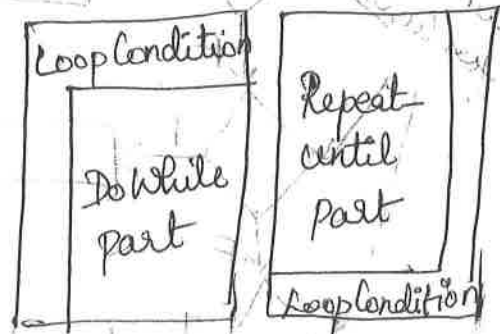 Loop Condition
Do While
part
Repeat
until
part
Loop Condition